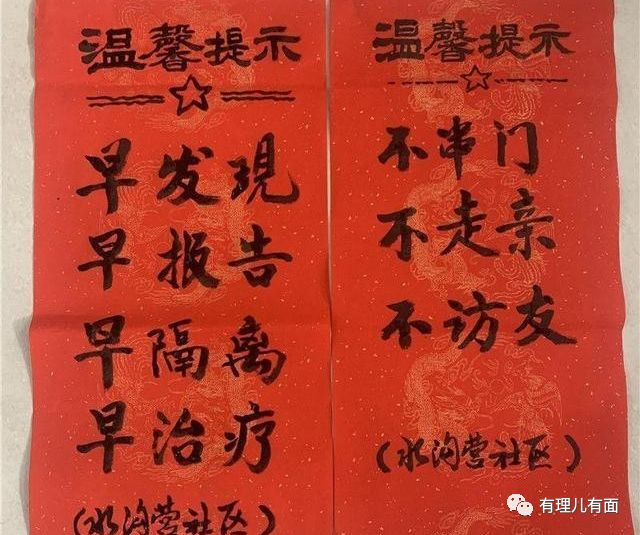 温馨提示
早发現
早报告
早隔离
早治疗
(水沟营社区)
温馨提示
不串门
不走亲
不访友
(水沟营社区)
有理儿有面